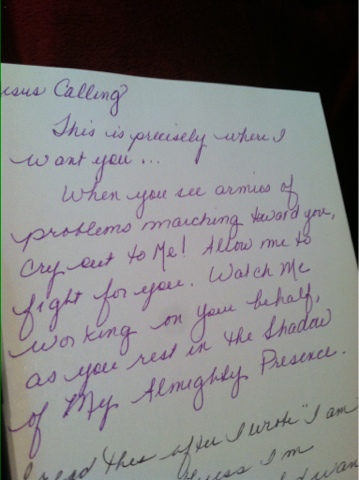 esus Calling
This is precisely where I
want you...
When you see armies of
problems marching toward you,
cry out to Me! Allow me to
fight for you. Watch Me
working on your behalf,
as you rest in the Shadow
of My Almighty Presence.
I read this after I wrote "I am
I'm